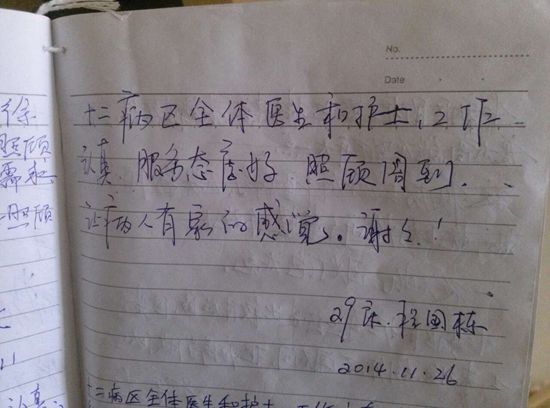 No.
Date
徐
照顾
照顾
十二病区全体医生和护士,工作
认真 服务态度好 照顾周到.
让病人有家的感觉。谢谢!
29床.程国栋
2014.11.26
十二病区全体医生和护士
认真